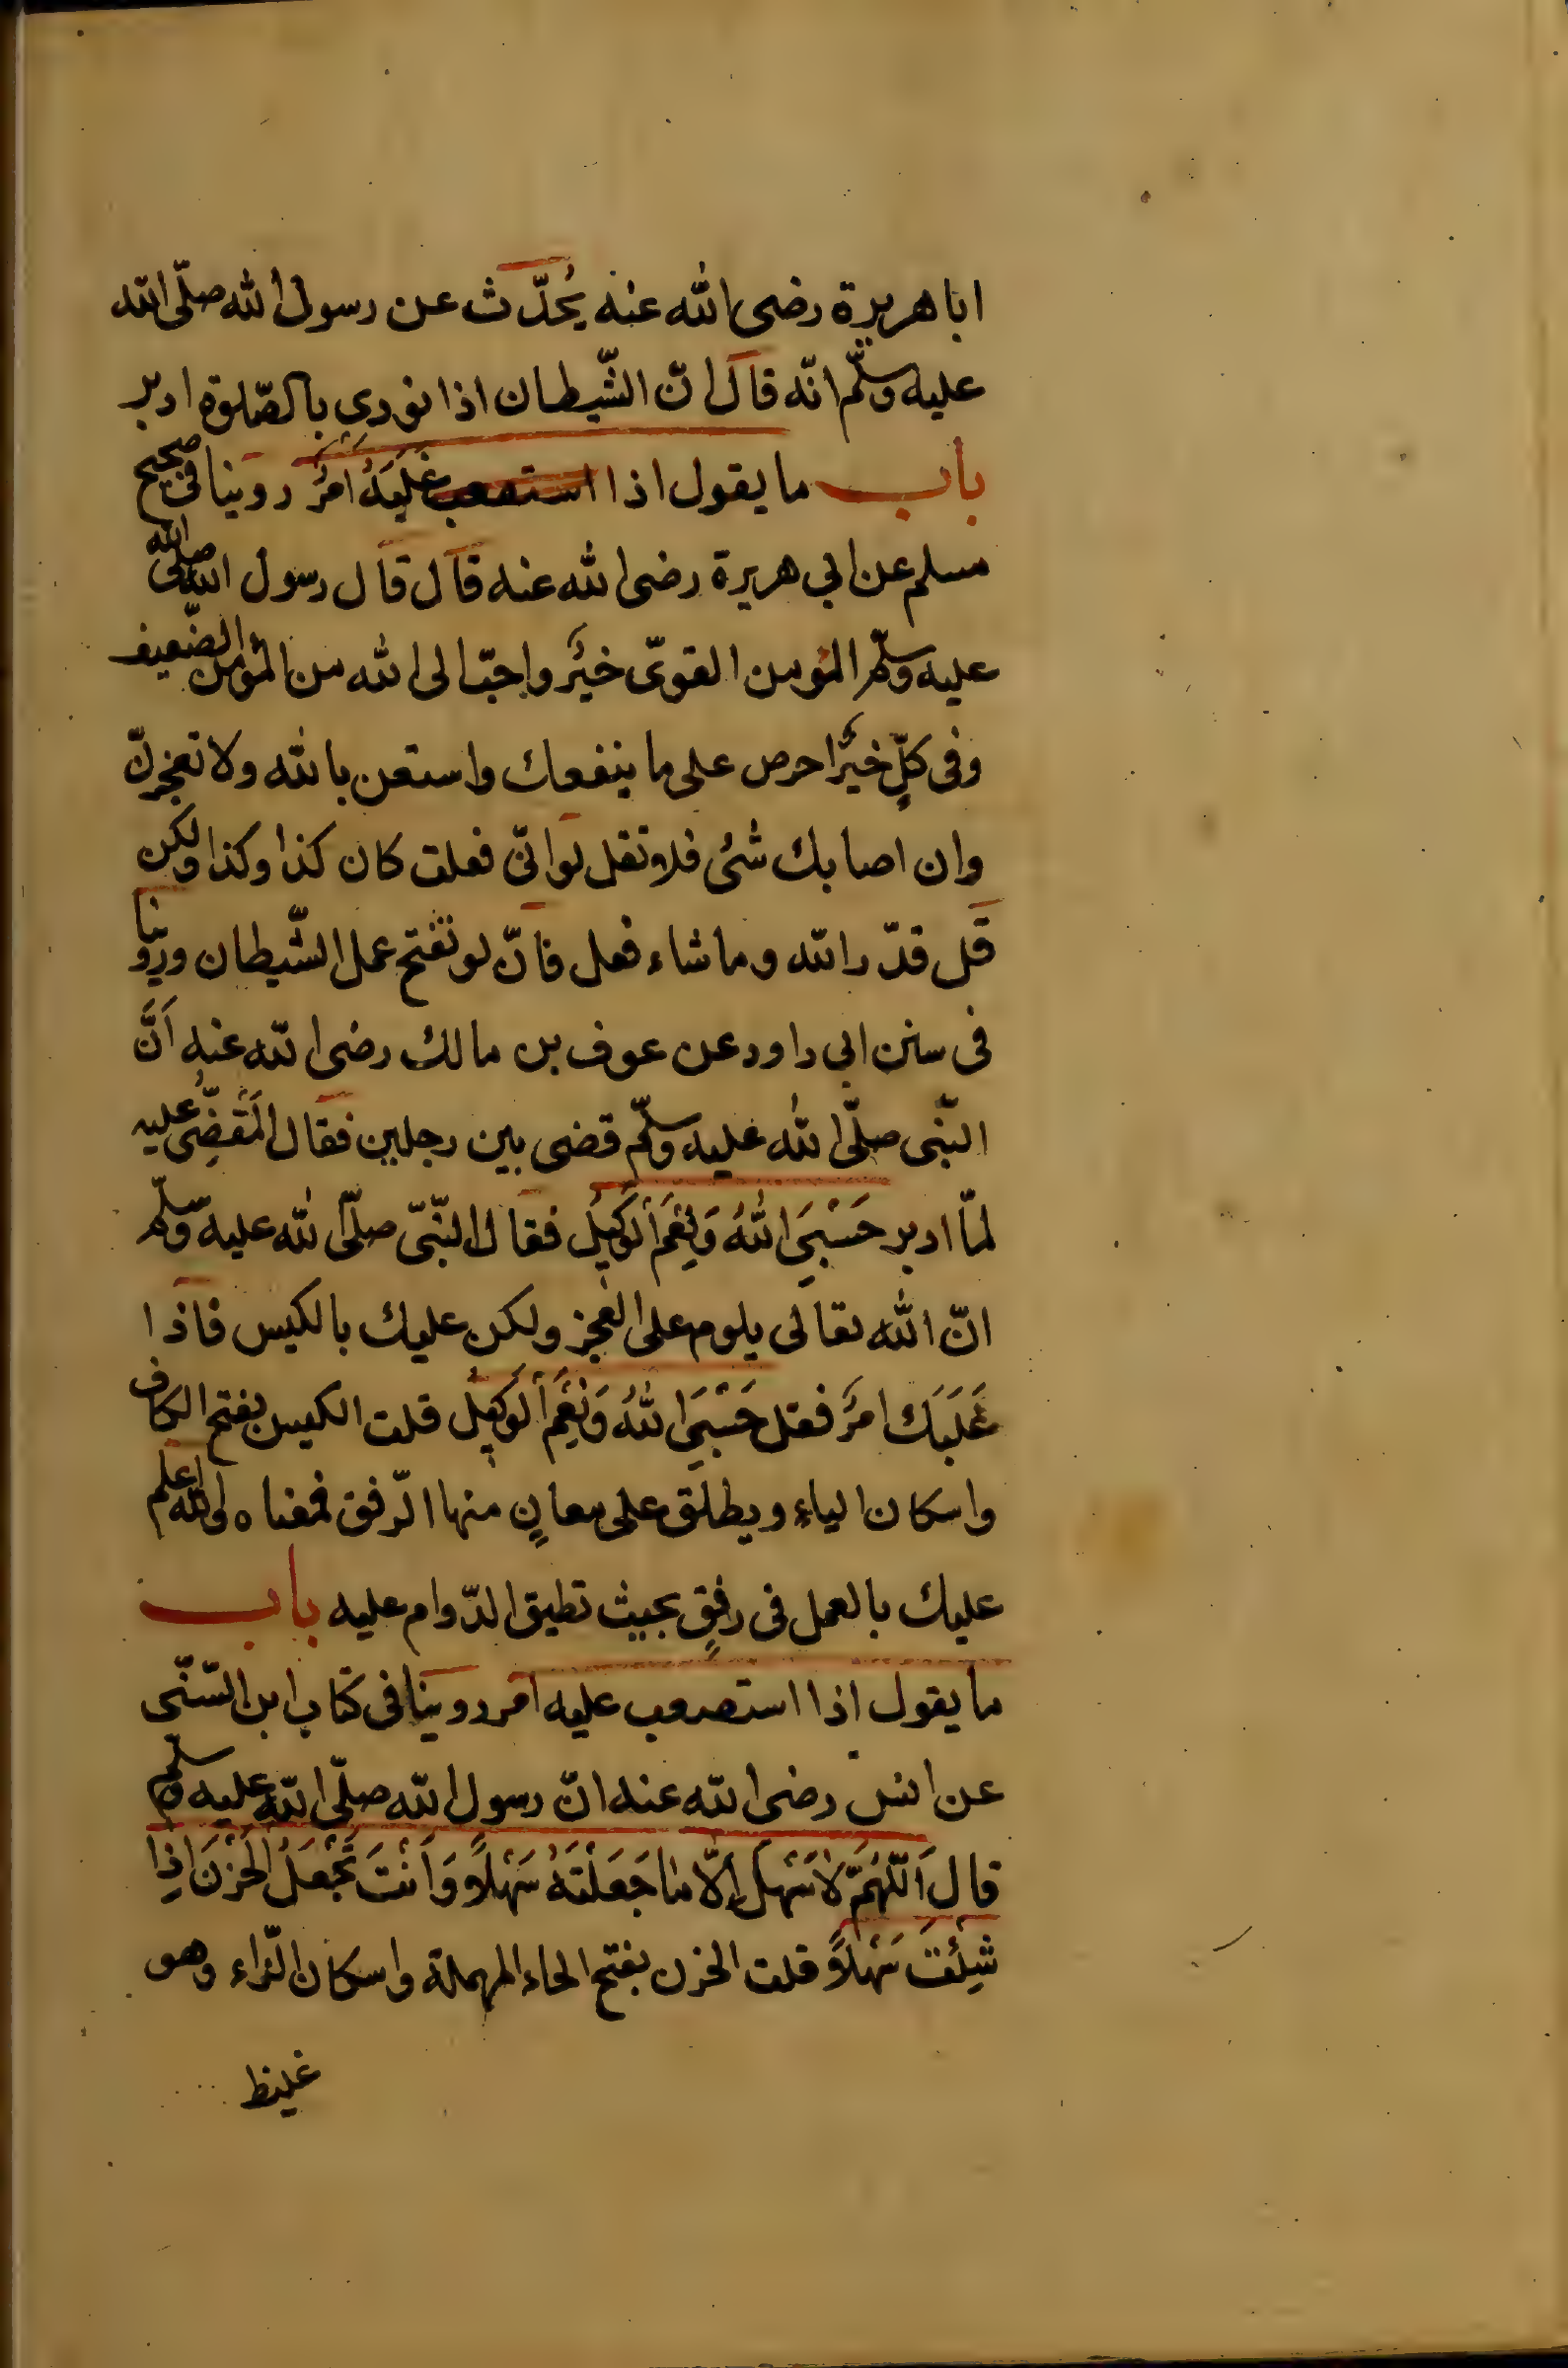 ابا هريرة رضى الله عنه يُحدّث عن رسول الله صلّى الله
عليه وسلّم انّه قال انّ الشّيطان اذا نودى بالصّلوة ادبر
باب ما يقول اذا استصعب غَلَبَهُ امرٌ روينا فى صحيح
مسلم عن ابي هريرة رضى الله عنه قال قال رسول الله صلى الله
عليه وسلّم المؤمن القوىّ خيرٌ واحبّ الى الله من المؤمن الضّعيف
وفى كلٍّ خيرٌ احرص على ما ينفعك واستعن بالله ولا تعجزنّ
وان اصابك شئ فلا تقل لو انّى فعلت كان كذا وكذا ولكن
قل قدّر الله وما شاء فعل فانّ لو تفتح عمل الشّيطان وروينا
فى سنن ابي داود عن عوف بن مالك رضى الله عنه اَنَّ
النّبى صلّى الله عليه وسلّم قضى بين رجلين فقال المَقْضِىُّ عليه
لمّا ادبر حَسْبِيَ اللهُ وَنِعْمَ الْوَكِيلُ فقال النّبىّ صلّى الله عليه وسلّم
انّ الله تعالى يلوم على العجز ولكن عليك بالكيس فاذا
غَلَبَكَ امرٌ فقل حَسْبِيَ اللهُ وَنِعْمَ الْوَكِيلُ قلت الكيس بفتح الكاف
واسكان الياء ويطلق على معانٍ منها الرّفق فمعناه والله اعلم
عليك بالعمل فى رفقٍ بحيث تطيق الدّوام عليه باب
ما يقول اذا استصعب عليه امر روينا فى كتاب ابن السّنّى
عن انس رضى الله عنه انّ رسول الله صلّى الله عليه وسلّم
قال اَللّهُمَّ لاَ سَهْلَ اِلّا مَا جَعَلْتَهُ سَهْلاً وَاَنْتَ تَجْعَلُ الحَزْنَ اِذَا
شِئْتَ سَهْلاً قلت الحزن بفتح الحاء المهملة واسكان الزّاء وهو
غليظ